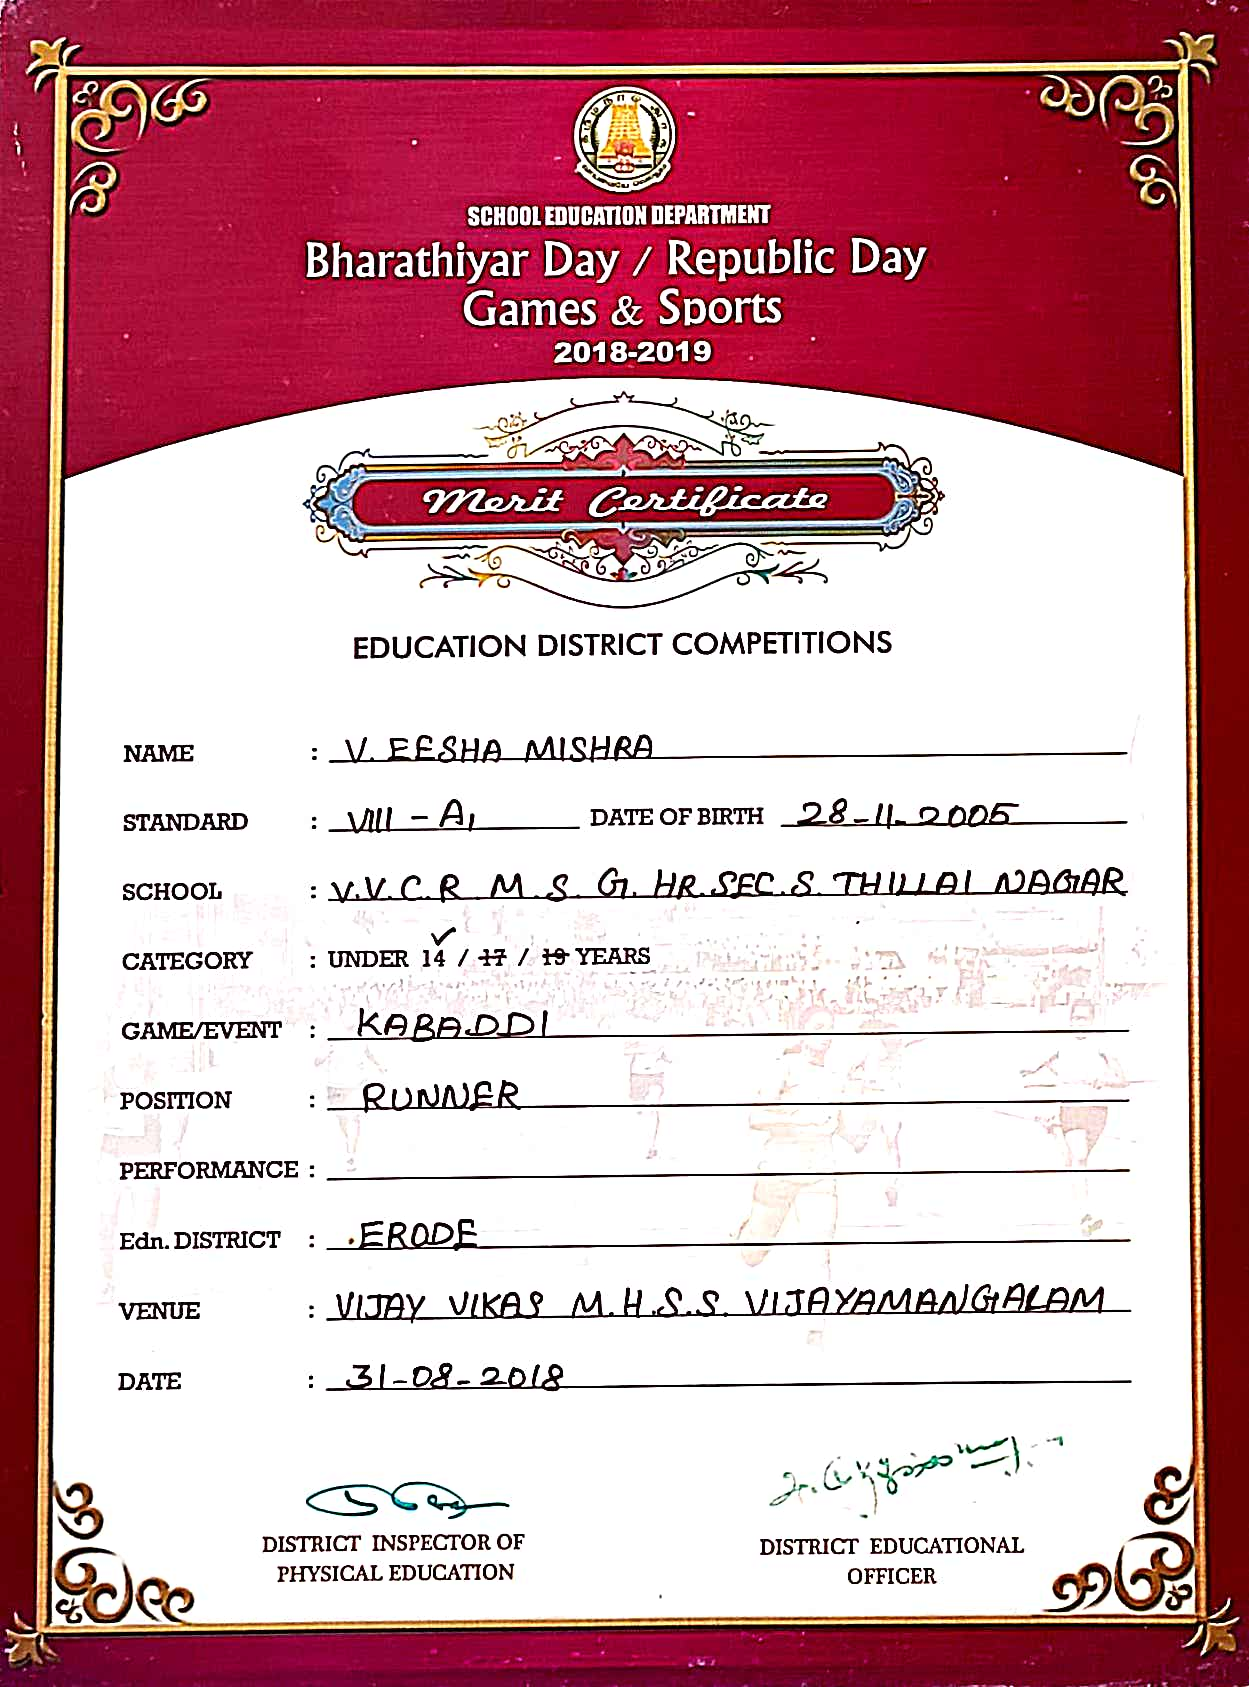 SCHOOL EDUCATION DEPARTMENT
Bharathiyar Day / Republic Day
Games & Sports
2018-2019
Merit Certificate
EDUCATION DISTRICT COMPETITIONS
NAME : V. EESHA MISHRA
STANDARD : VIII - A1 DATE OF BIRTH 28-11-2005
SCHOOL : V.V.C.R M.S.G. HR.SEC.S. THILLAI NAGAR
CATEGORY : UNDER 14 / 17 / 19 YEARS
GAME/EVENT : KABADDI
POSITION : RUNNER
PERFORMANCE :
Edn. DISTRICT : ERODE
VENUE : VIJAY VIKAS M.H.S.S. VIJAYAMANGALAM
DATE : 31-08-2018
DISTRICT INSPECTOR OF DISTRICT EDUCATIONAL
PHYSICAL EDUCATION OFFICER